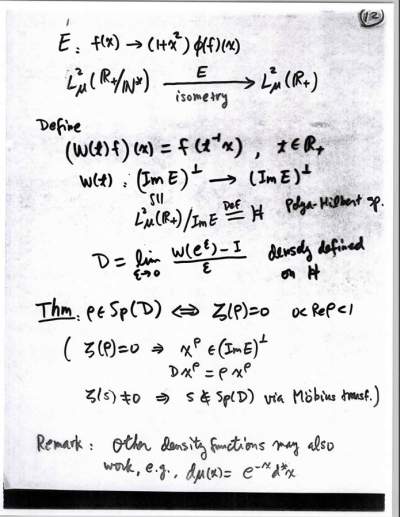 12
E : f(x) → (1+x²) φ(f)(x)
L²_μ(ℝ₊/ℕ*) —E→ L²_μ(ℝ₊)
isometry
Define
(W(t)f)(x) = f(t⁻¹x) , t ∈ ℝ₊
W(t) : (Im E)^⊥ → (Im E)^⊥
SII
L²_μ(ℝ₊)/Im E Def = H Polya-Hilbert sp.
D = lim_{ε→0} (W(e^ε) − I)/ε densely defined
on H
Thm : ρ ∈ Sp(D) ⟺ ζ(ρ)=0 0<Reρ<1
( ζ(ρ)=0 ⇒ x^ρ ∈ (Im E)^⊥
D x^ρ = ρ x^ρ
ζ(s) ≠ 0 ⇒ s ∉ Sp(D) via Möbius transf. )
Remark : Other density functions may also
work, e.g., dμ(x) = e^{-x} d*x